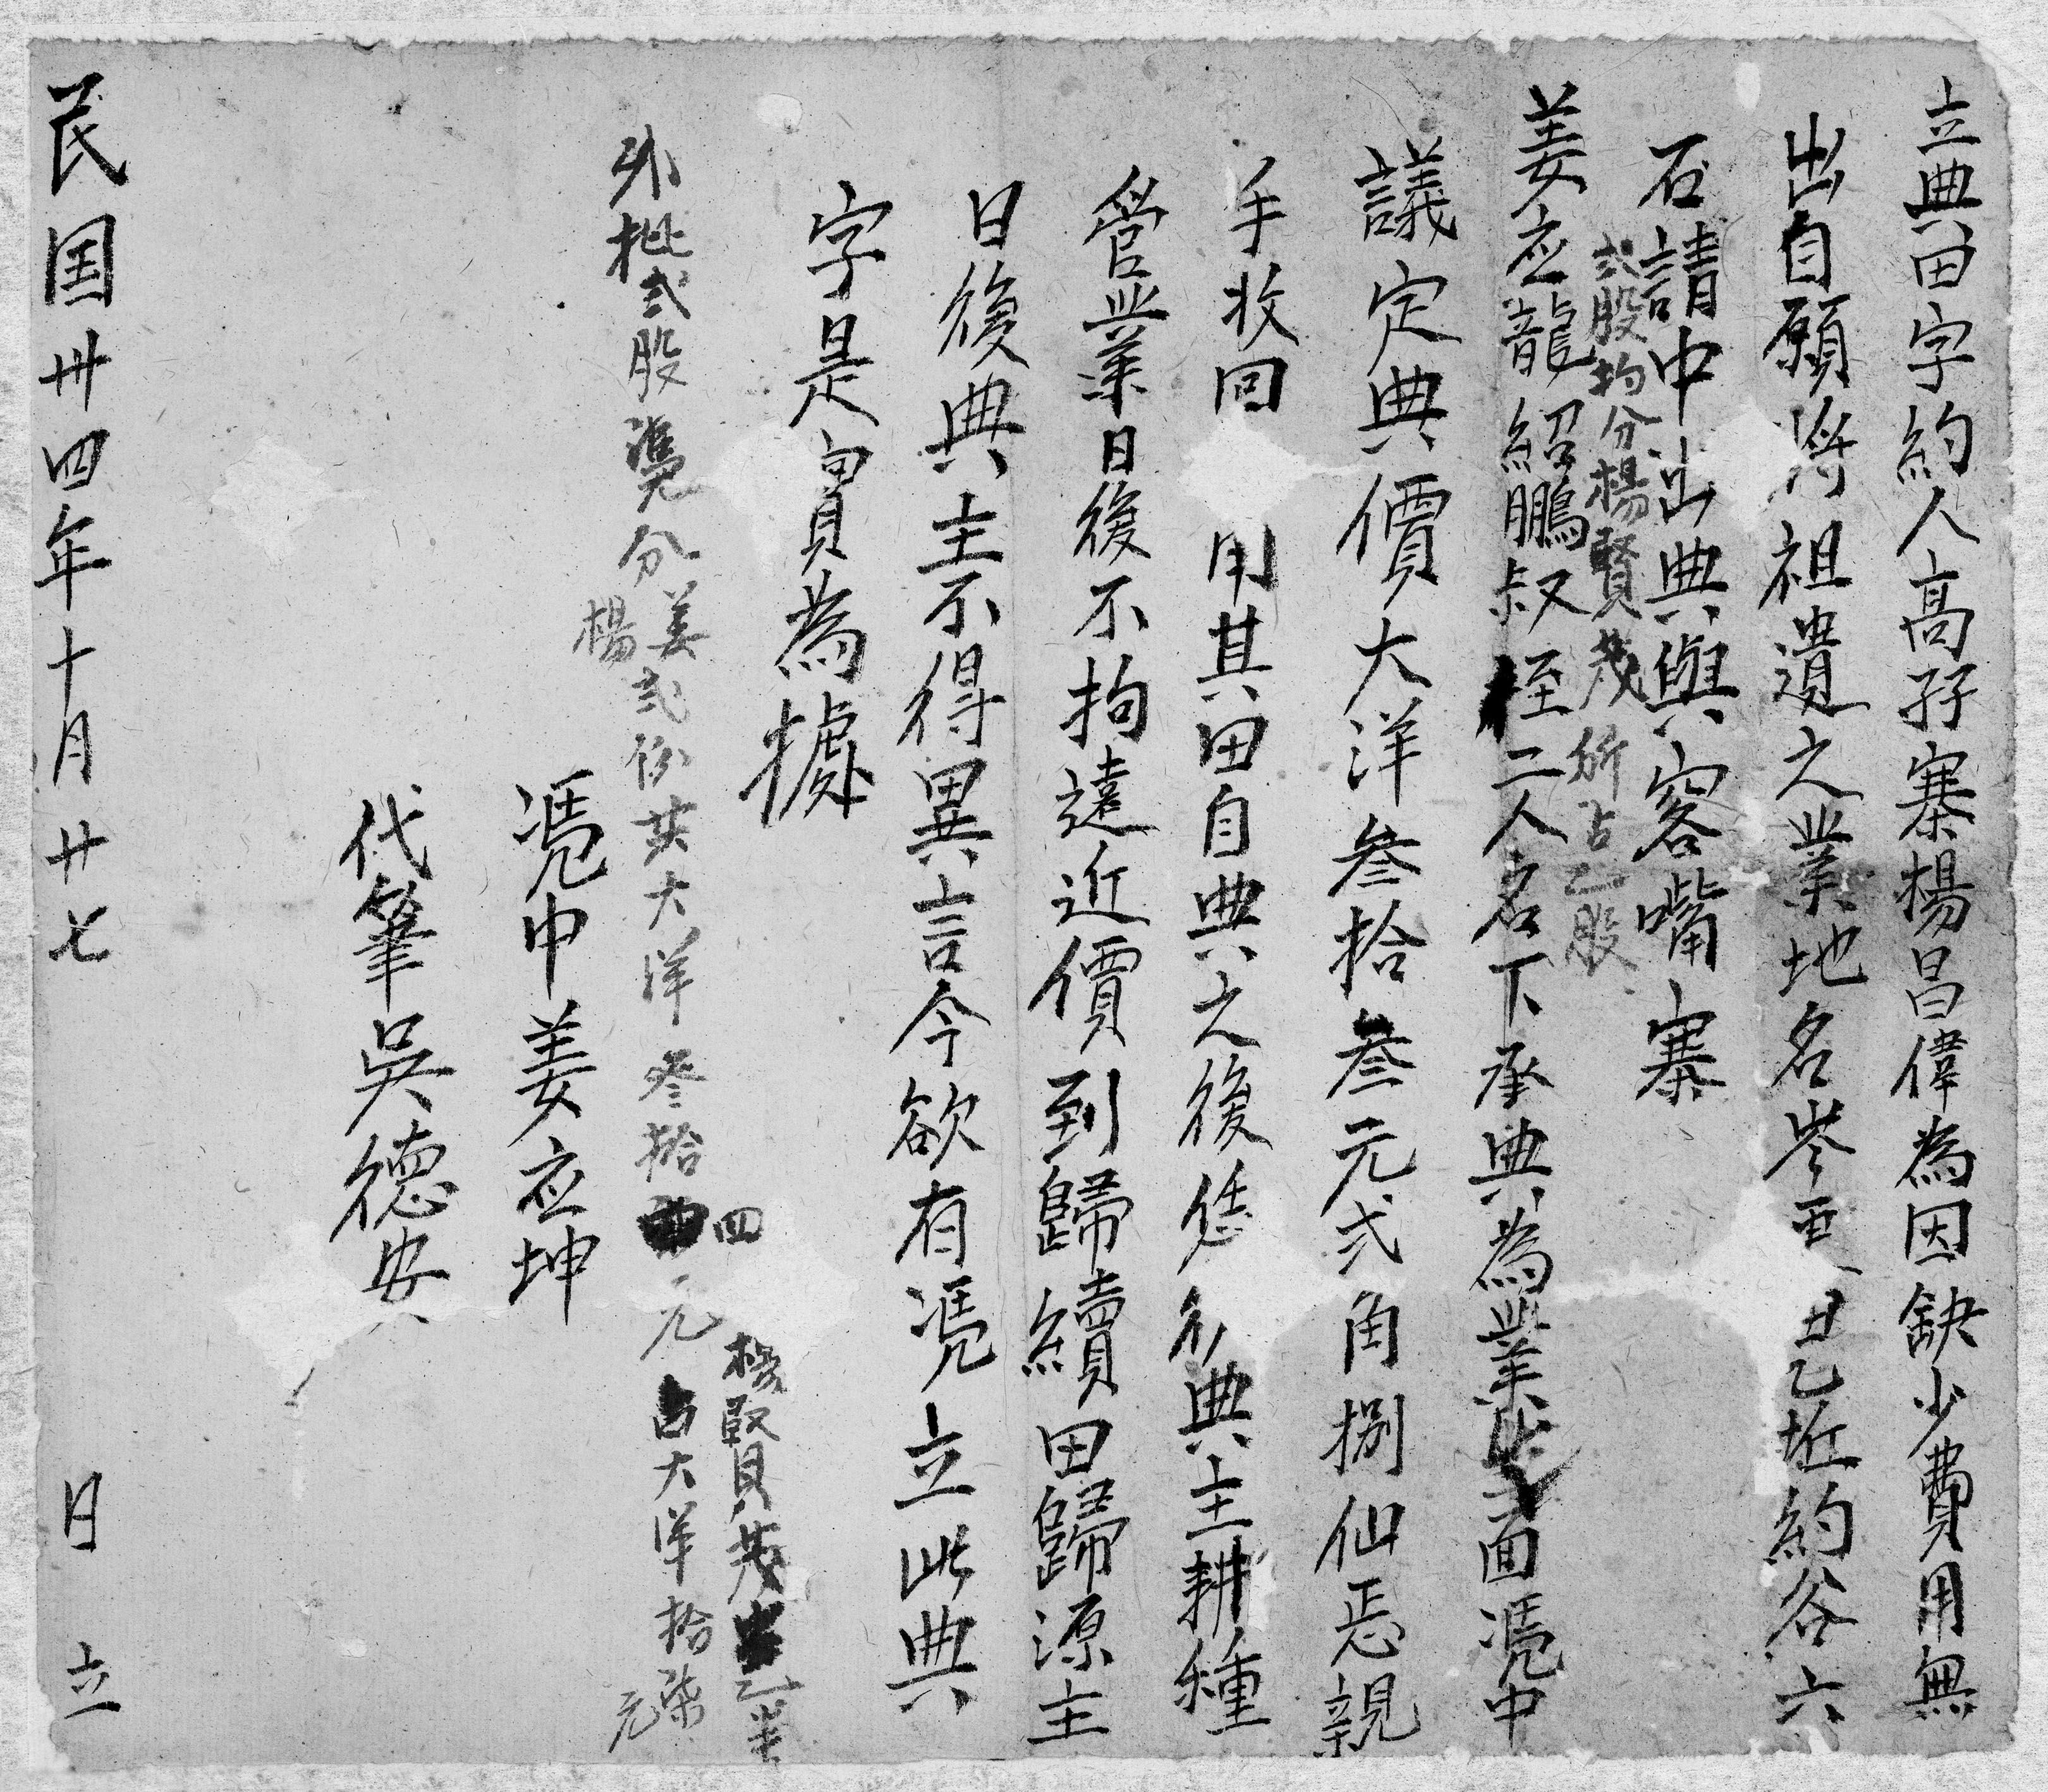 立典田字約人高孖寨楊昌偉為因缺少費用無
出自願将祖遺之業地名岑 丑乙坵約谷六
石請中出典與客嘴寨
弍股均分楊賢茂所占乙股
姜应龍紹鵬叔侄二人名下承典為業 面憑中
議定典價大洋叄拾叄元弍角捌仙 親
手收回 用其田自典之後恁 典主耕種
營業日後不拘遠近價到歸續田歸源主
日後典主不得異言今欲有憑立此典
字是實為據
外批弍股憑分姜楊弍 共大洋叄拾四元
楊賢茂 乙半
占大洋拾柒元
憑中姜应坤
代筆吳德安
民国卅四年十月廿七 日 立